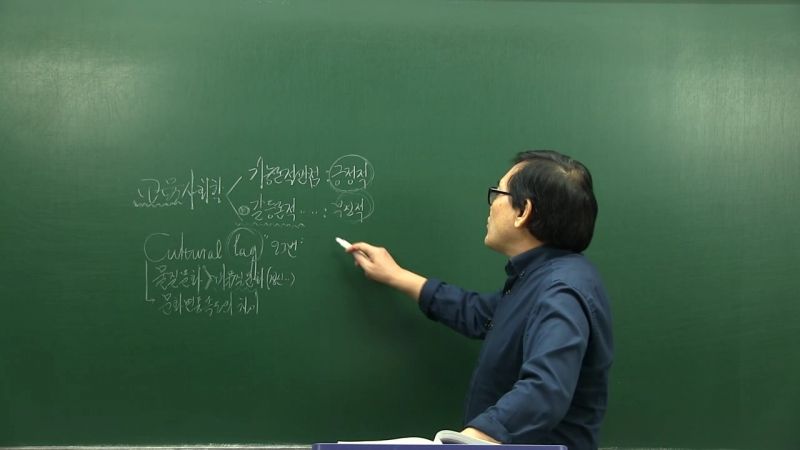 교육사회학 < 기능론적관점 : 긍정적
갈등론적 .... : 부정적
Cultural lag
물질문화 > 비물질문화
문화변동속도의 차이